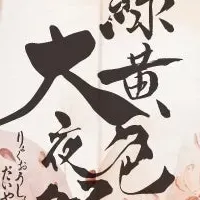 緑黄色
大夜
りょくおうし
だいや